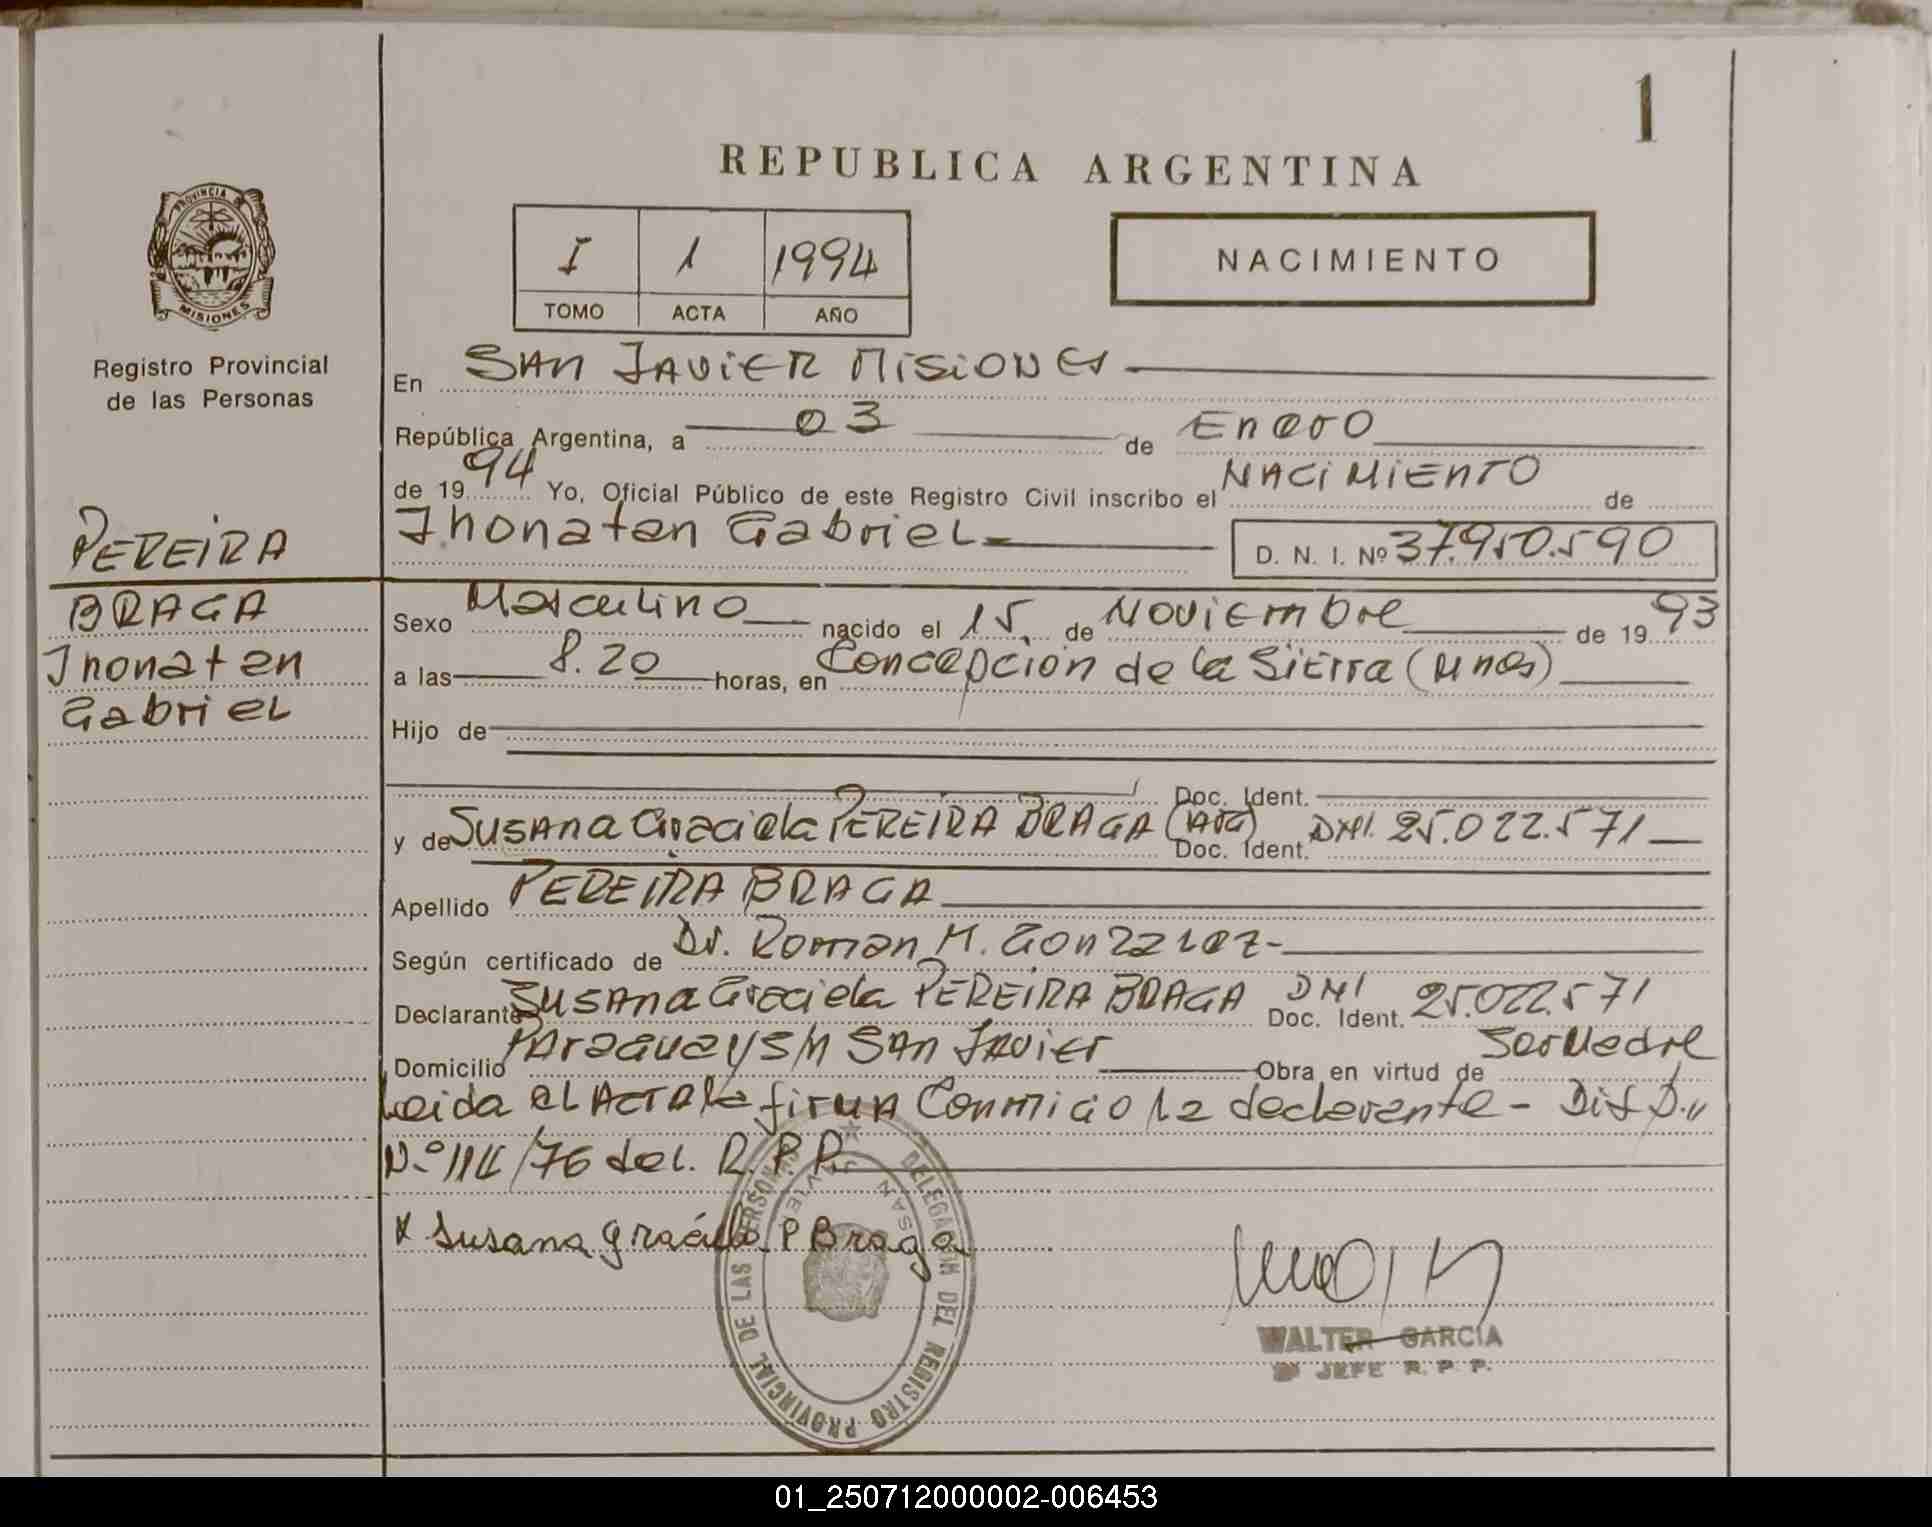 1
REPUBLICA ARGENTINA
PROVINCIA DE
MISIONES
Registro Provincial
de las Personas
I 1 1994
TOMO ACTA AÑO
NACIMIENTO
En SAN JAVIER MISIONES
República Argentina, a 03 de Enero
de 1994 Yo, Oficial Público de este Registro Civil inscribo el NACIMIENTO de
Jhonatan Gabriel D. N. I. Nº 37.950.590
PEREIRA
BRAGA
Jhonatan
Gabriel
Sexo Masculino nacido el 15 de Noviembre de 1993
a las 8.20 horas, en Concepcion de la Sierra (Mnes)
Hijo de
Doc. Ident.
y de Susana Graciela PEREIRA BRAGA (ARG) Doc. Ident. DNI. 25.022.571
Apellido PEREIRA BRAGA
Según certificado de Dr. Roman M. Gonzalez-
Declarante Susana Graciela PEREIRA BRAGA Doc. Ident. DNI 25.022.571
Domicilio Paraguay S/N San Javier Obra en virtud de Ser Madre
Leida el ACTA la firma Conmigo la declarante - Disp.
N.º 114/76 del. R.P.P.
x Susana Graciela P Braga
DELEGACION DEL REGISTRO PROVINCIAL DE LAS PERSONAS
SAN JAVIER
WALTER GARCIA
JEFE R. P. P.
01_250712000002-006453